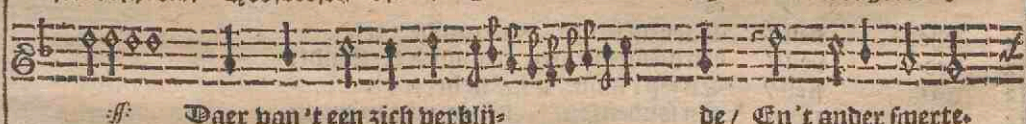 :ff: Daer van 't een zich verblij- de / En 't ander smerte.